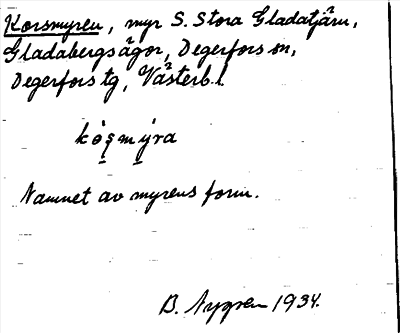 Korsmyren, myr S. Stora Gladatjärn,
Gladabergsågor, Degerfors sn,
Degerfors tg, Västerb. l.
kò̱ṣmý̱ra
Namnet av myrens form.
B. Nygren 1934.